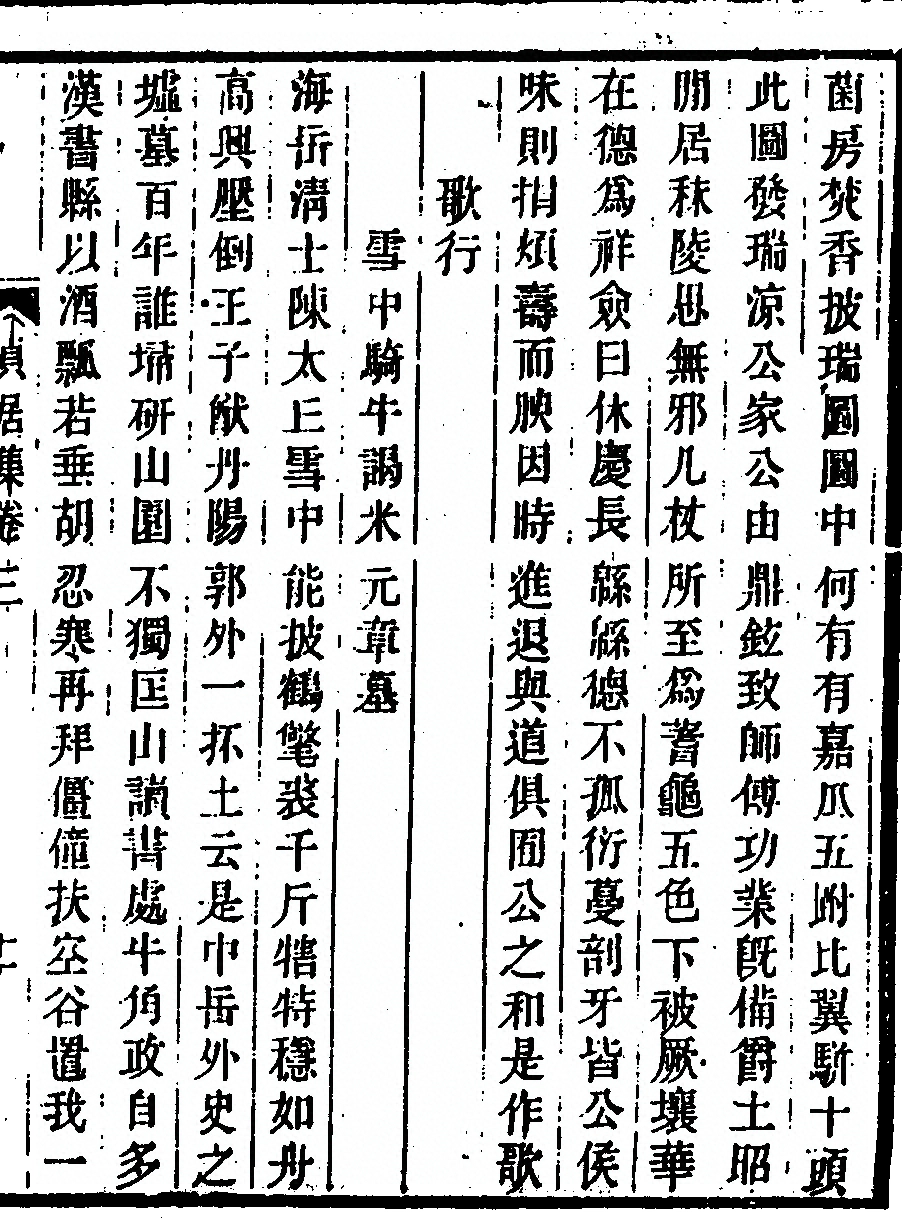 菌房焚香披瑞圖圖中何有有嘉瓜五跗比翼駢十頭
此圖發瑞凉公家公由鼎鉉致師傅功業旣備爵土昭
閒居秣陵思無邪几杖所至爲蓍龜五色下被厥壤華
在德爲祥僉曰休慶長緜緜德不孤衍蔓剖牙皆公侯
味則捐煩壽而腴因時進退與道俱囿公之和是作歌
歌行
雪中騎牛謁米元章墓
海岳淸士陳太丘雪中能披鶴氅裘千斤犗特穩如舟
高興壓倒王子猷丹陽郭外一抔土云是中岳外史之
墟墓百年誰埽硏山園不獨匡山讀書處牛角政自多
漢書縣以酒瓢若垂胡忍寒再拜僵僮扶空谷置我一
貞居集卷三